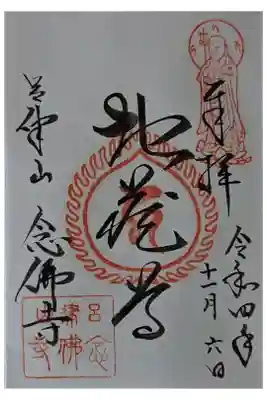 奉拝
令和四年
十一月六日
地蔵尊
呂律山 念佛寺
呂律山
念佛寺